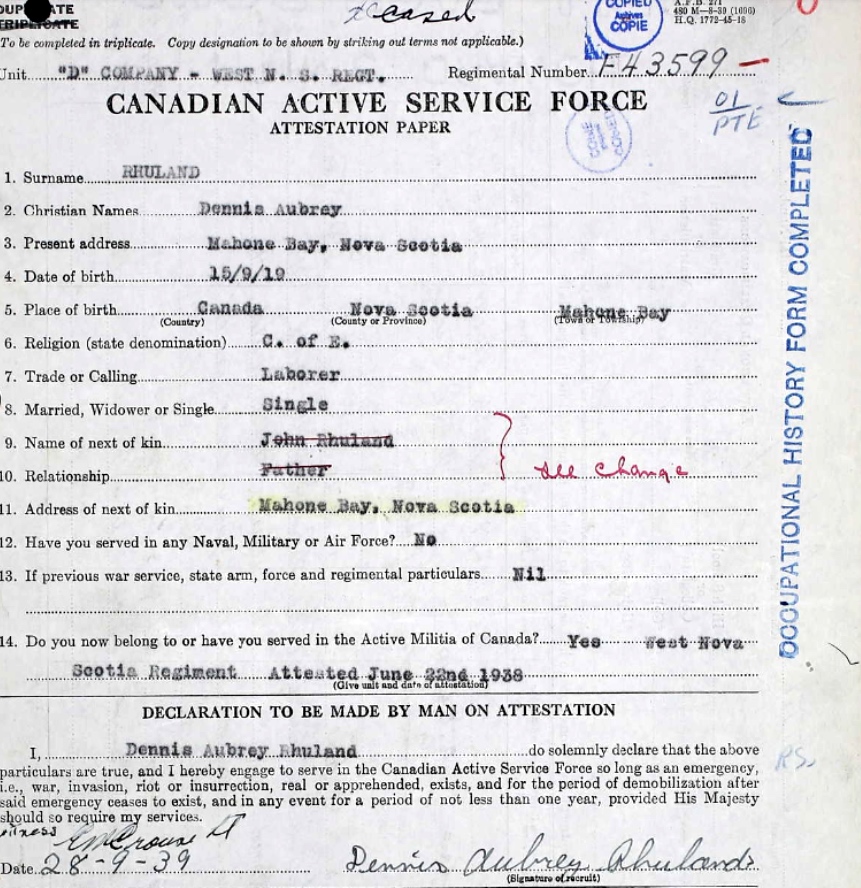 DUPLICATE
TRIPLICATE
COPIED
Archives
COPIE
480 M—8-39 (1696)
H.Q. 1772-45-18
(To be completed in triplicate. Copy designation to be shown by striking out terms not applicable.)
Unit "D" COMPANY - WEST N. S. REGT. Regimental Number F43599
CANADIAN ACTIVE SERVICE FORCE
ATTESTATION PAPER
01
PTE
1. Surname RHULAND
2. Christian Names Dennis Aubrey
3. Present address Mahone Bay, Nova Scotia
4. Date of birth 15/9/19
5. Place of birth Canada Nova Scotia Mahone Bay
(Country) (County or Province) (Town or Township)
6. Religion (state denomination) C. of E.
7. Trade or Calling Laborer
8. Married, Widower or Single Single
9. Name of next of kin John Rhuland
10. Relationship Father
see change
11. Address of next of kin Mahone Bay, Nova Scotia
12. Have you served in any Naval, Military or Air Force? No
13. If previous war service, state arm, force and regimental particulars Nil
14. Do you now belong to or have you served in the Active Militia of Canada? Yes West Nova
Scotia Regiment Attested June 22nd 1938
(Give unit and date of attestation)
OCCUPATIONAL HISTORY FORM COMPLETED
DECLARATION TO BE MADE BY MAN ON ATTESTATION
I, Dennis Aubrey Rhuland do solemnly declare that the above
particulars are true, and I hereby engage to serve in the Canadian Active Service Force so long as an emergency,
i.e., war, invasion, riot or insurrection, real or apprehended, exists, and for the period of demobilization after
said emergency ceases to exist, and in any event for a period of not less than one year, provided His Majesty
should so require my services.
RS.
Witness
Date 28-9-39 Dennis Aubrey Rhuland
(Signature of recruit)